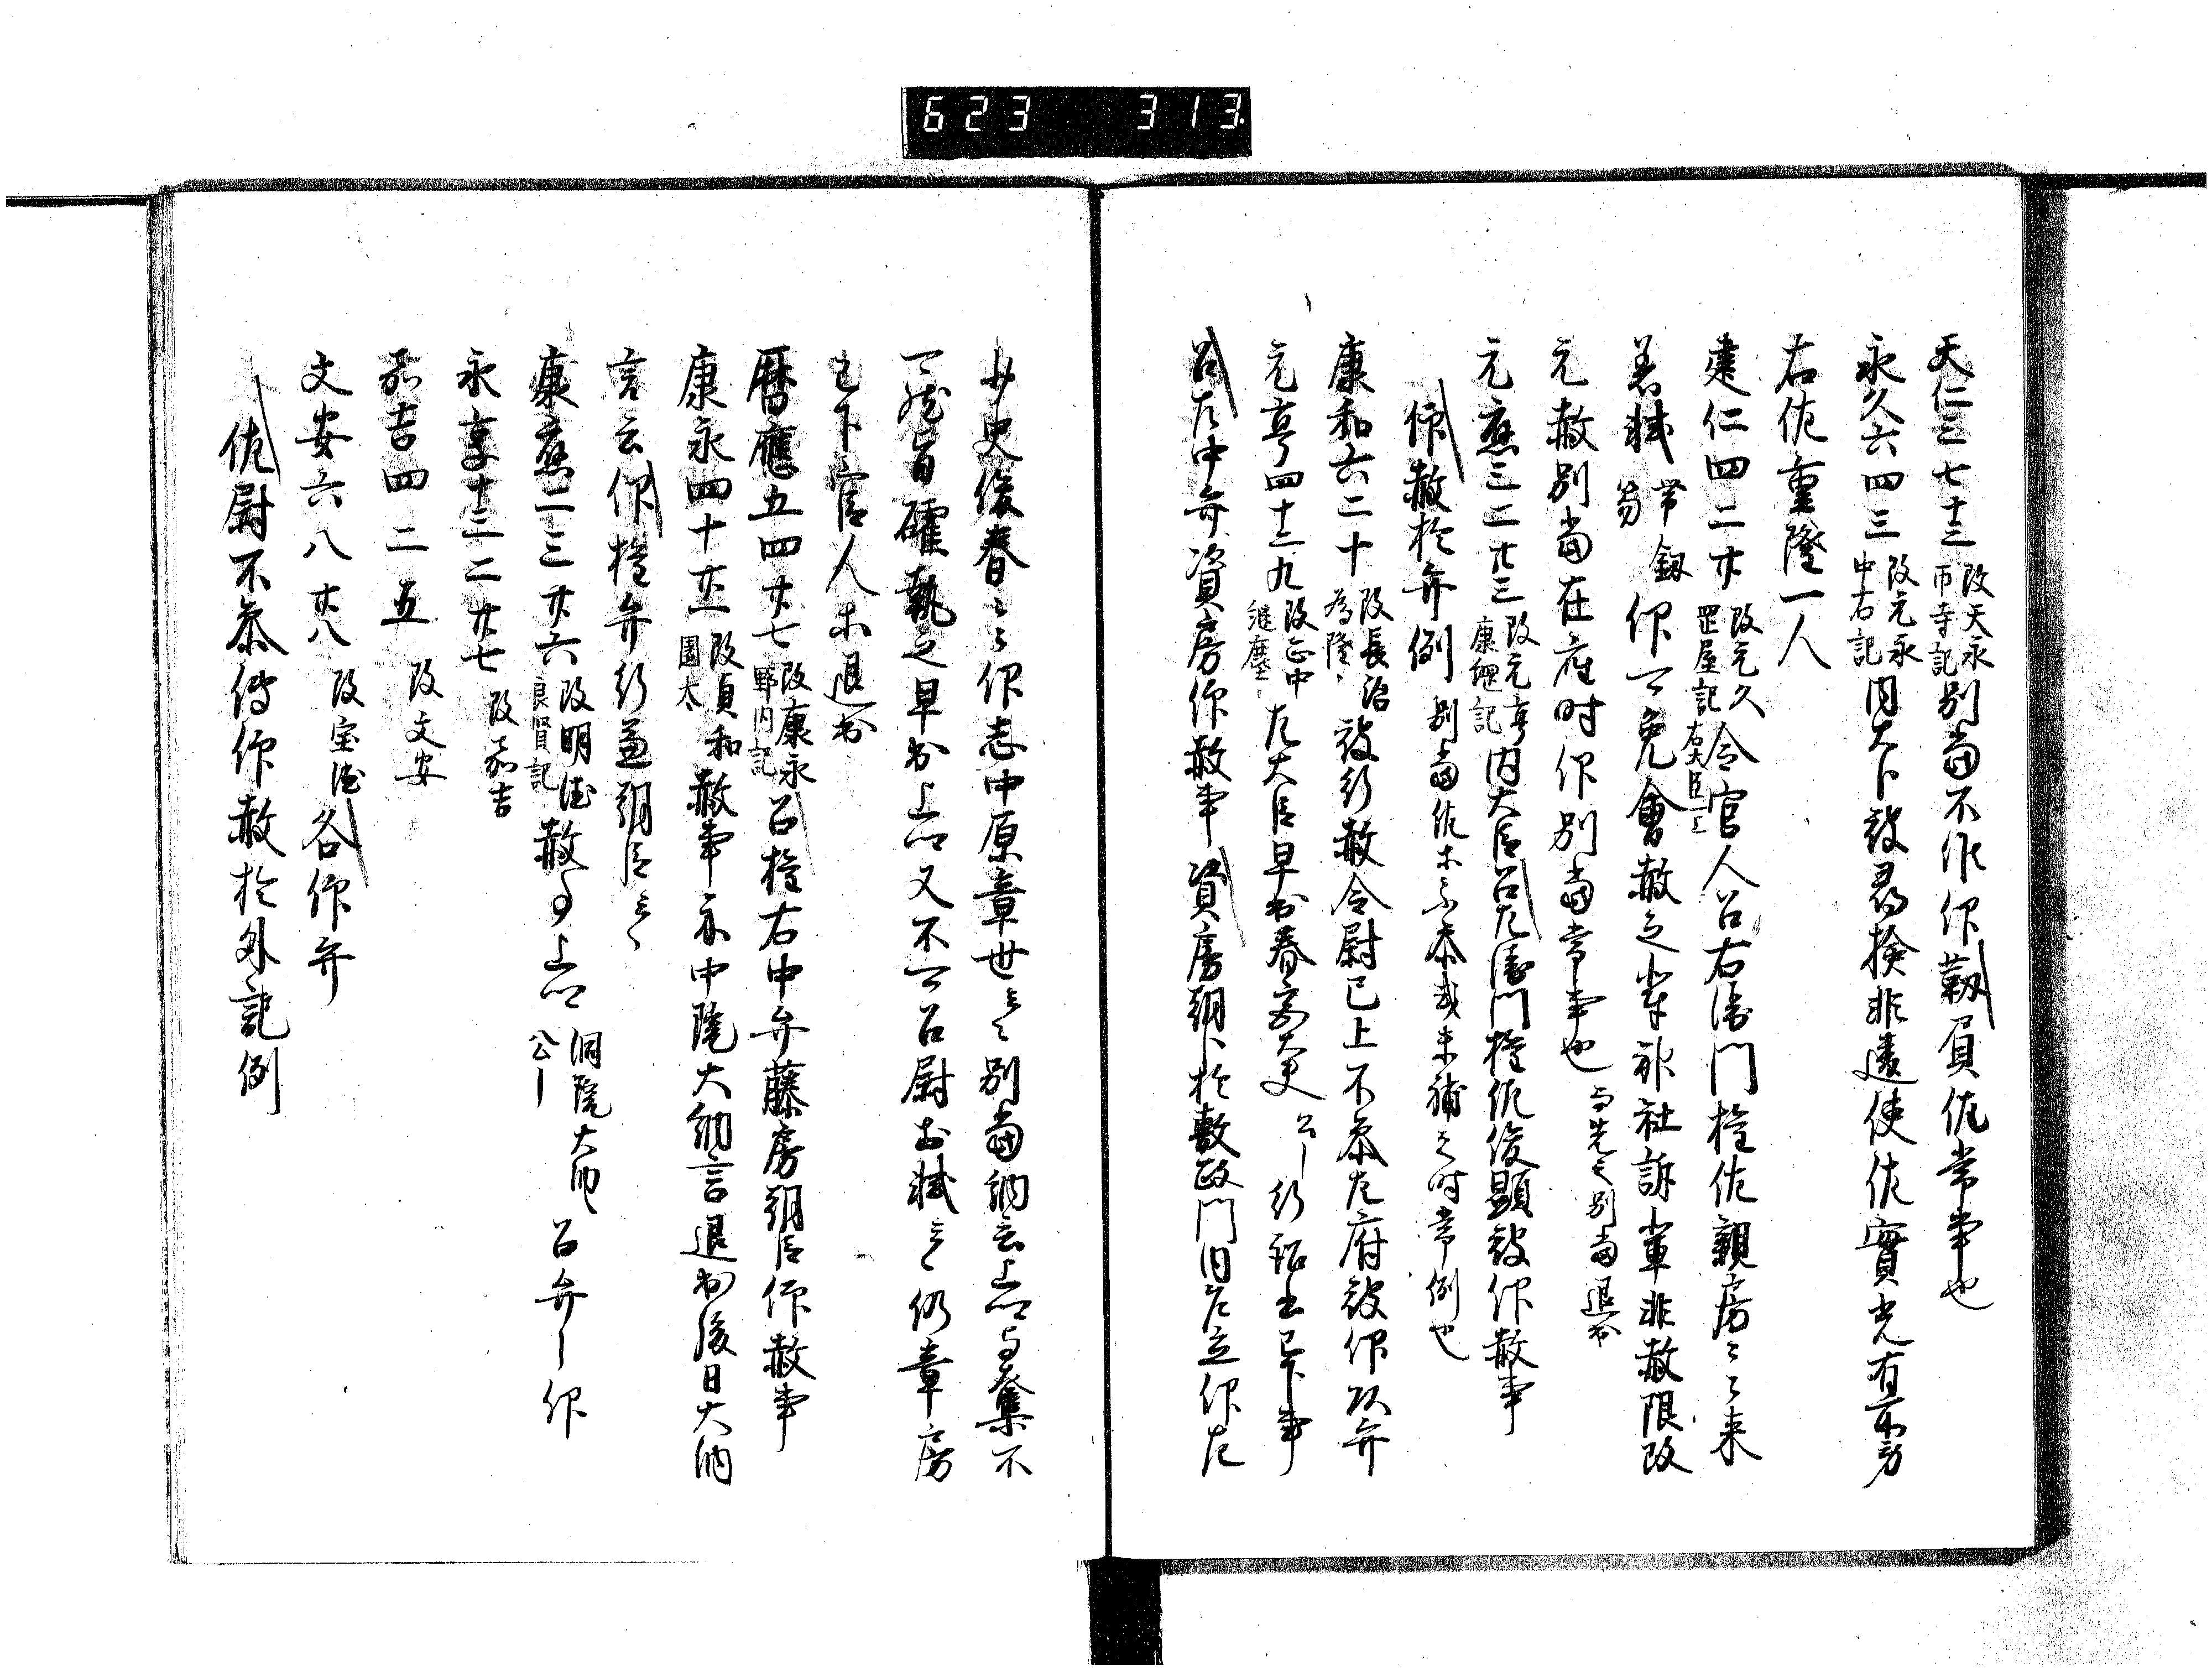 623 313
天仁三七十三 改天永 币寺記 別當不作仰靱負佐常事也
永久六四三 改元永 中右記 内大卜被尋検非違使佐實光有
右佐重隆一人
建仁四二廿 改元久 令官人召右衛門権佐親房々々来
着軾 帯釼 笏 仰可免會赦之輩神社訴輩非赦限改
元赦別當在座時仰別當常事也 与先之別當退出
元應三二廿三 改元亨 康綱記 内大臣召左衛門権佐俊顕被仰赦事
仰赦於弁例 別當佐不参或未補之時常例也
康和六二十 改長治 為隆 被行赦令尉已上不参左府被仰頭弁
元亨四十二九 改正中 継塵 左大臣早出春宮大夫 公— 行詔書已下事
召左中弁資房仰赦事 資房朝臣於敷政門内座立仰左
少史俊春々々仰志中原章世云々別當納云上卿与奪不
可然旨確執之早出上卿又不可召尉於軾云々仍章房
已下官人不退出
暦應五四廿七 改康永 召権右中弁藤房朝臣仰赦事
康永四十廿一 改貞和 園太 赦事示中院大納言退出後日大納
言云仰権弁行兼朝臣云々
康應二三廿六 改明徳 良賢記 赦事上卿 洞院大納 公— 召弁—仰
永享十三二十七 改嘉吉
嘉吉四二五 改文安
文安六八廿八 改宝徳 各仰弁
佐尉不参時仰赦於外記例